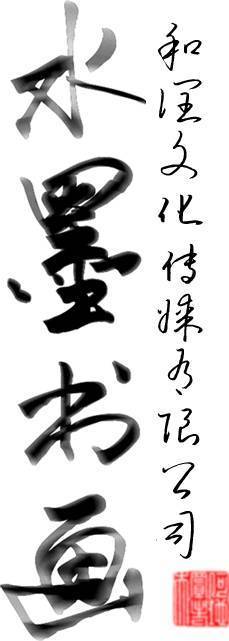 水墨书画
和润文化传媒有限公司